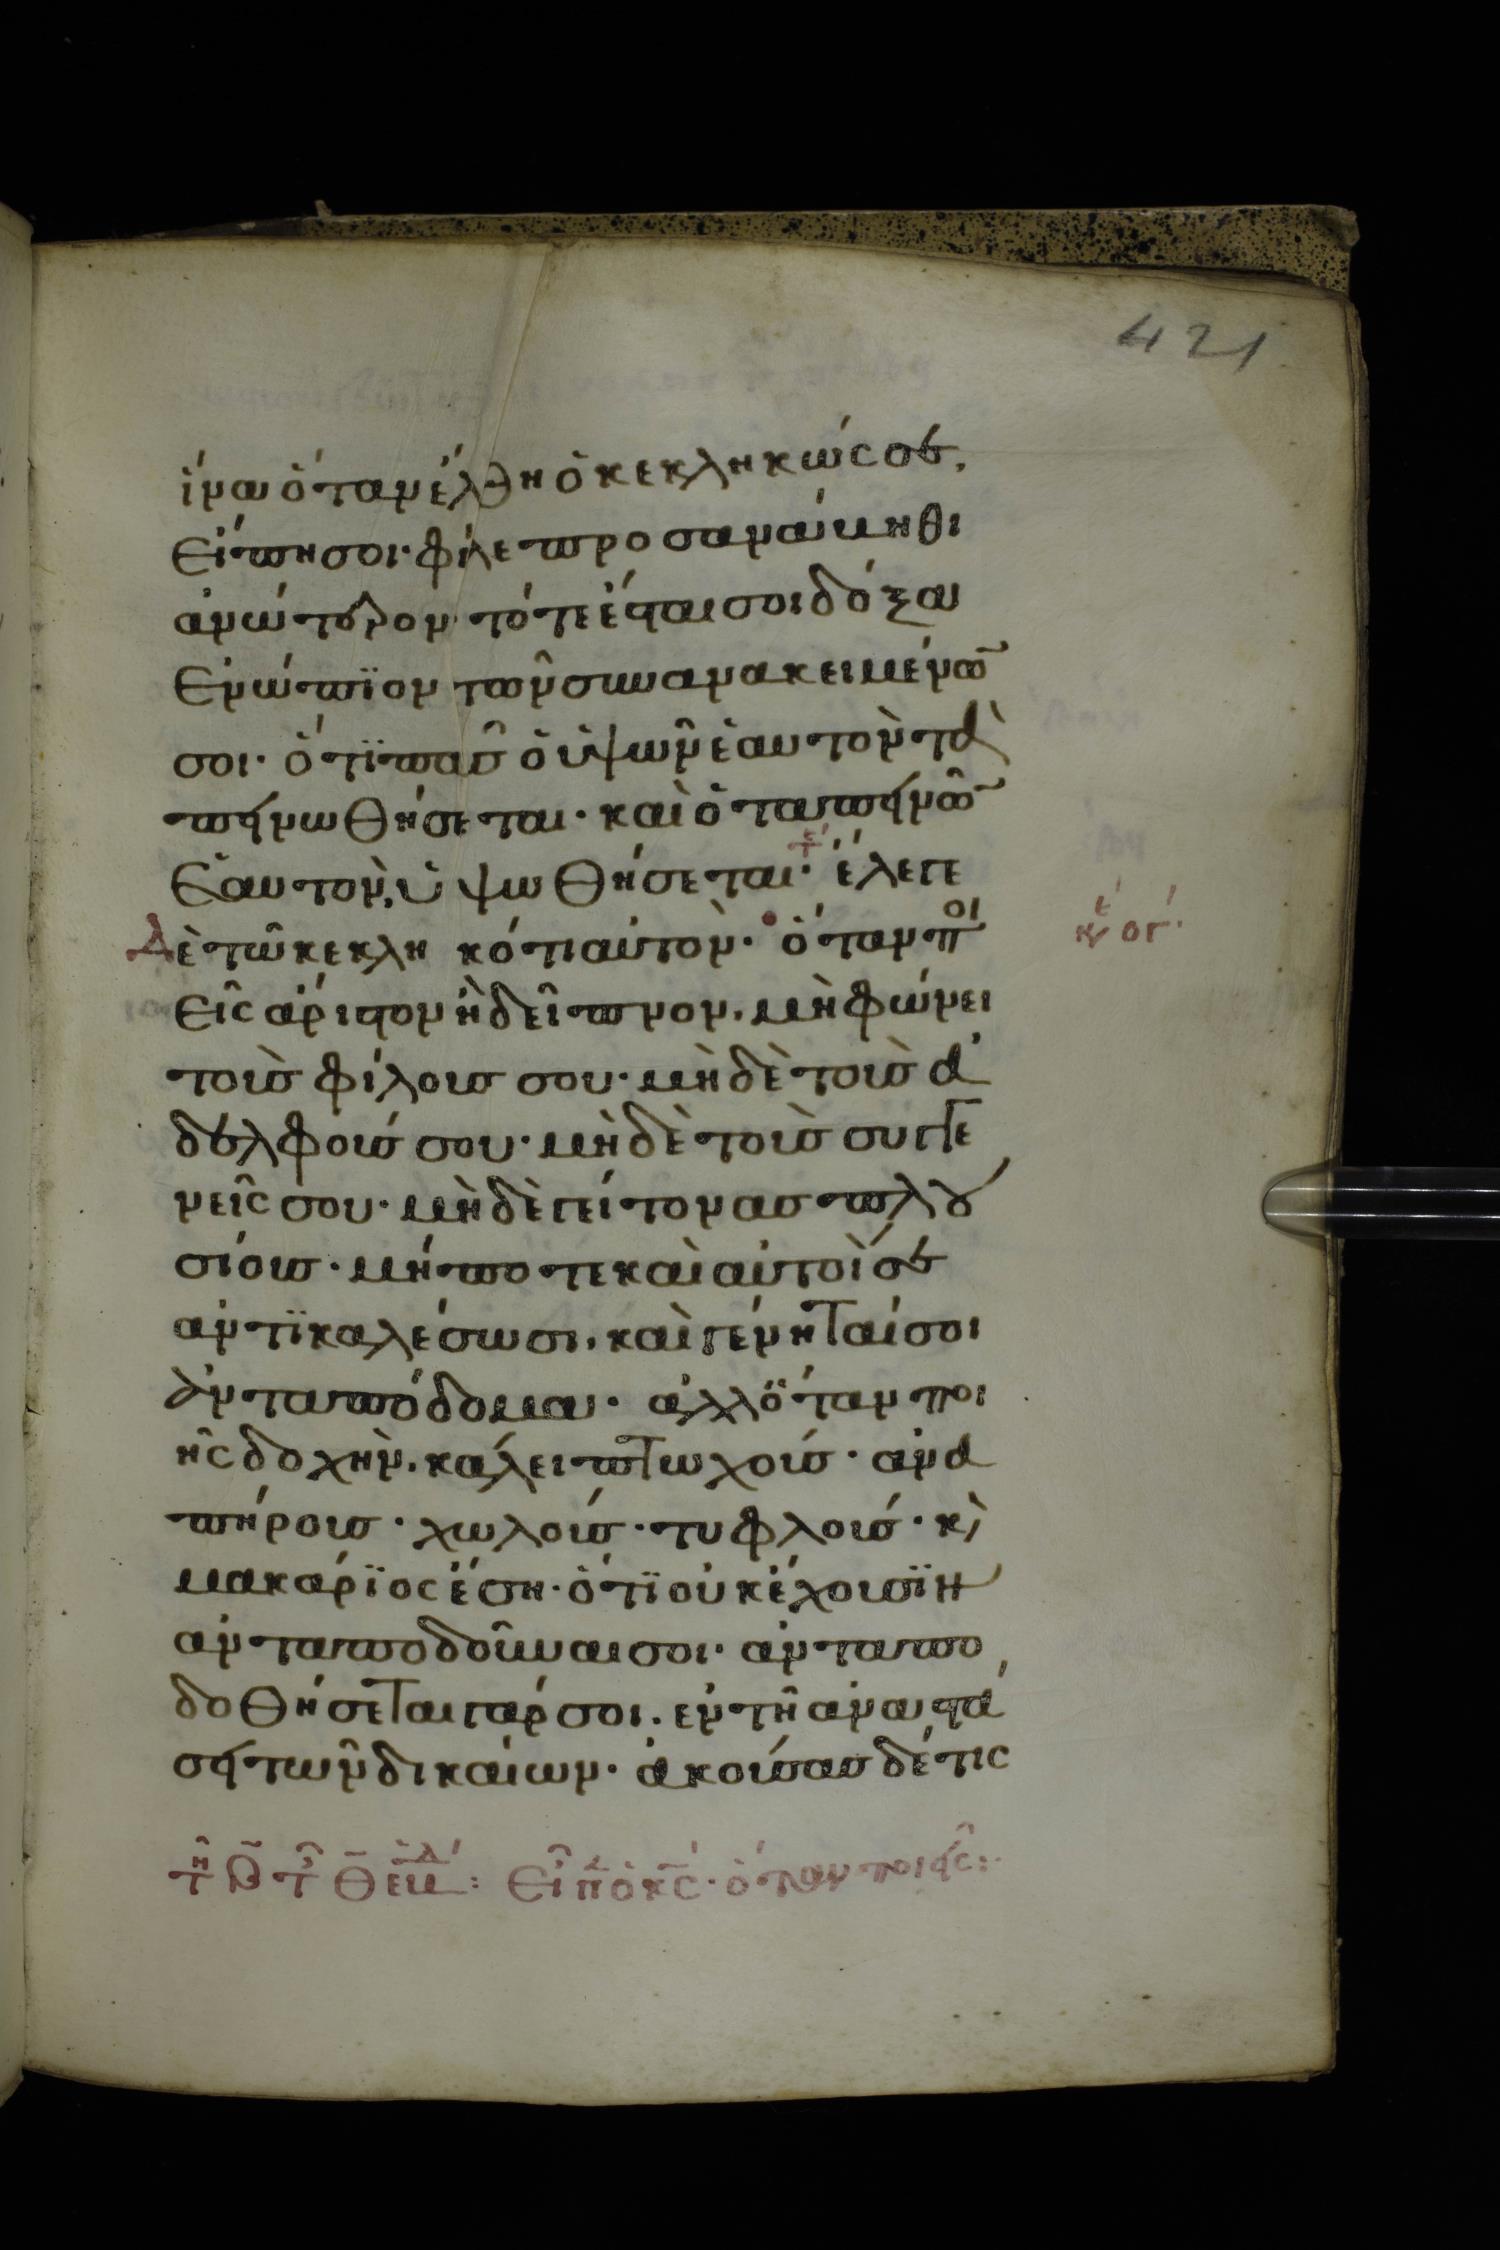 421
ἵνα ὅταν ἔλθη ὁ κεκληκώς σε,
εἴπη σοι· φίλε προσανάβηθι
ἀνώτερον· τότε ἔσται σοι δόξα
ἐνώπϊον τῶν συνανακειμένων
σοι· ὅτϊ πᾶσ ὁ ὑψῶν ἑαυτὸν τα
πεινωθήσεται· καὶ ὁ ταπεινῶν
ἑαυτὸν, ὑψωθήσεται· ἔλεγε
Δὲ τῶ κεκληκότι αὐτὸν· ὅταν ποι
εῖς ἄριστον ἢ δεῖπνον, μὴ φώνει
τοὺσ φίλουσ σου· μὴ δὲ τοὺσ ἀ
δελφούσ σου· μὴ δὲ τοὺσ συγγε
νεῖς σου· μὴ δὲ γείτονασ πλου
σίουσ· μήποτε καὶ αὐτοὶ σε
ἀντϊκαλέσωσι, καὶ γένηται σοι
ἀνταπόδομα· ἀλλ ὅταν ποι
ῆς δοχὴν, κάλει πτωχούσ· ἀνα
πήρουσ· χωλούσ· τυφλούσ· κὶ
μακάρϊος ἔση· ὅτϊ οὐκ ἔχουσϊν
ἀνταποδοῦναι σοι· ἀνταπο
δοθήσεται γάρ σοι. ἐν τῆ ἀναστά
σει τῶν δικαίων· ἀκούσασ δέ τις
τη Β τ Θ εβδ: εἶπ ὁ κς· ὅταν ποιεῖς:·